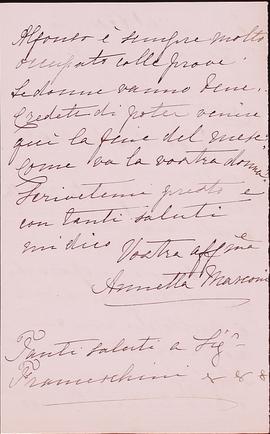 Alfonso è sempre molto
occupato colle prove.
Le donne vanno bene.
Credete di poter venire
qui la fine del mese?
Come va la vostra donna?
Scrivetemi presto e
con tanti saluti
mi dico Vostra affma
Annetta Marconi
Tanti saluti a Sigr
Franceschini & & &